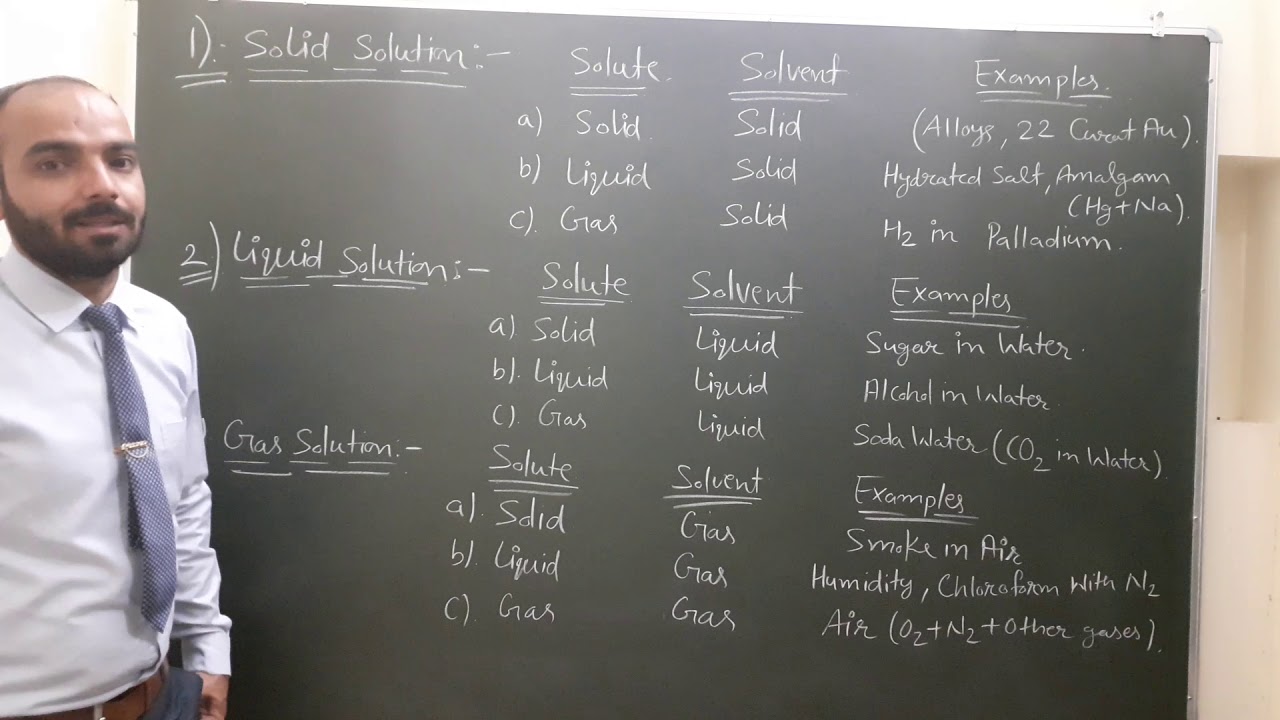 1). Solid Solution:- Solute. Solvent Examples.
a) Solid. Solid (Alloys, 22 Carat Au).
b) Liquid Solid Hydrated Salt, Amalgam
(Hg+Na).
c). Gas Solid H2 in Palladium.
2) Liquid Solution:- Solute Solvent Examples
a) Solid Liquid Sugar in Water.
b). Liquid Liquid Alcohol in Water.
c). Gas Liquid Soda Water (CO2 in Water)
Gas Solution:- Solute Solvent Examples
a). Solid Gas Smoke in Air
b). Liquid Gas Humidity, Chloroform with N2
c). Gas Gas Air (O2+N2+Other gases).